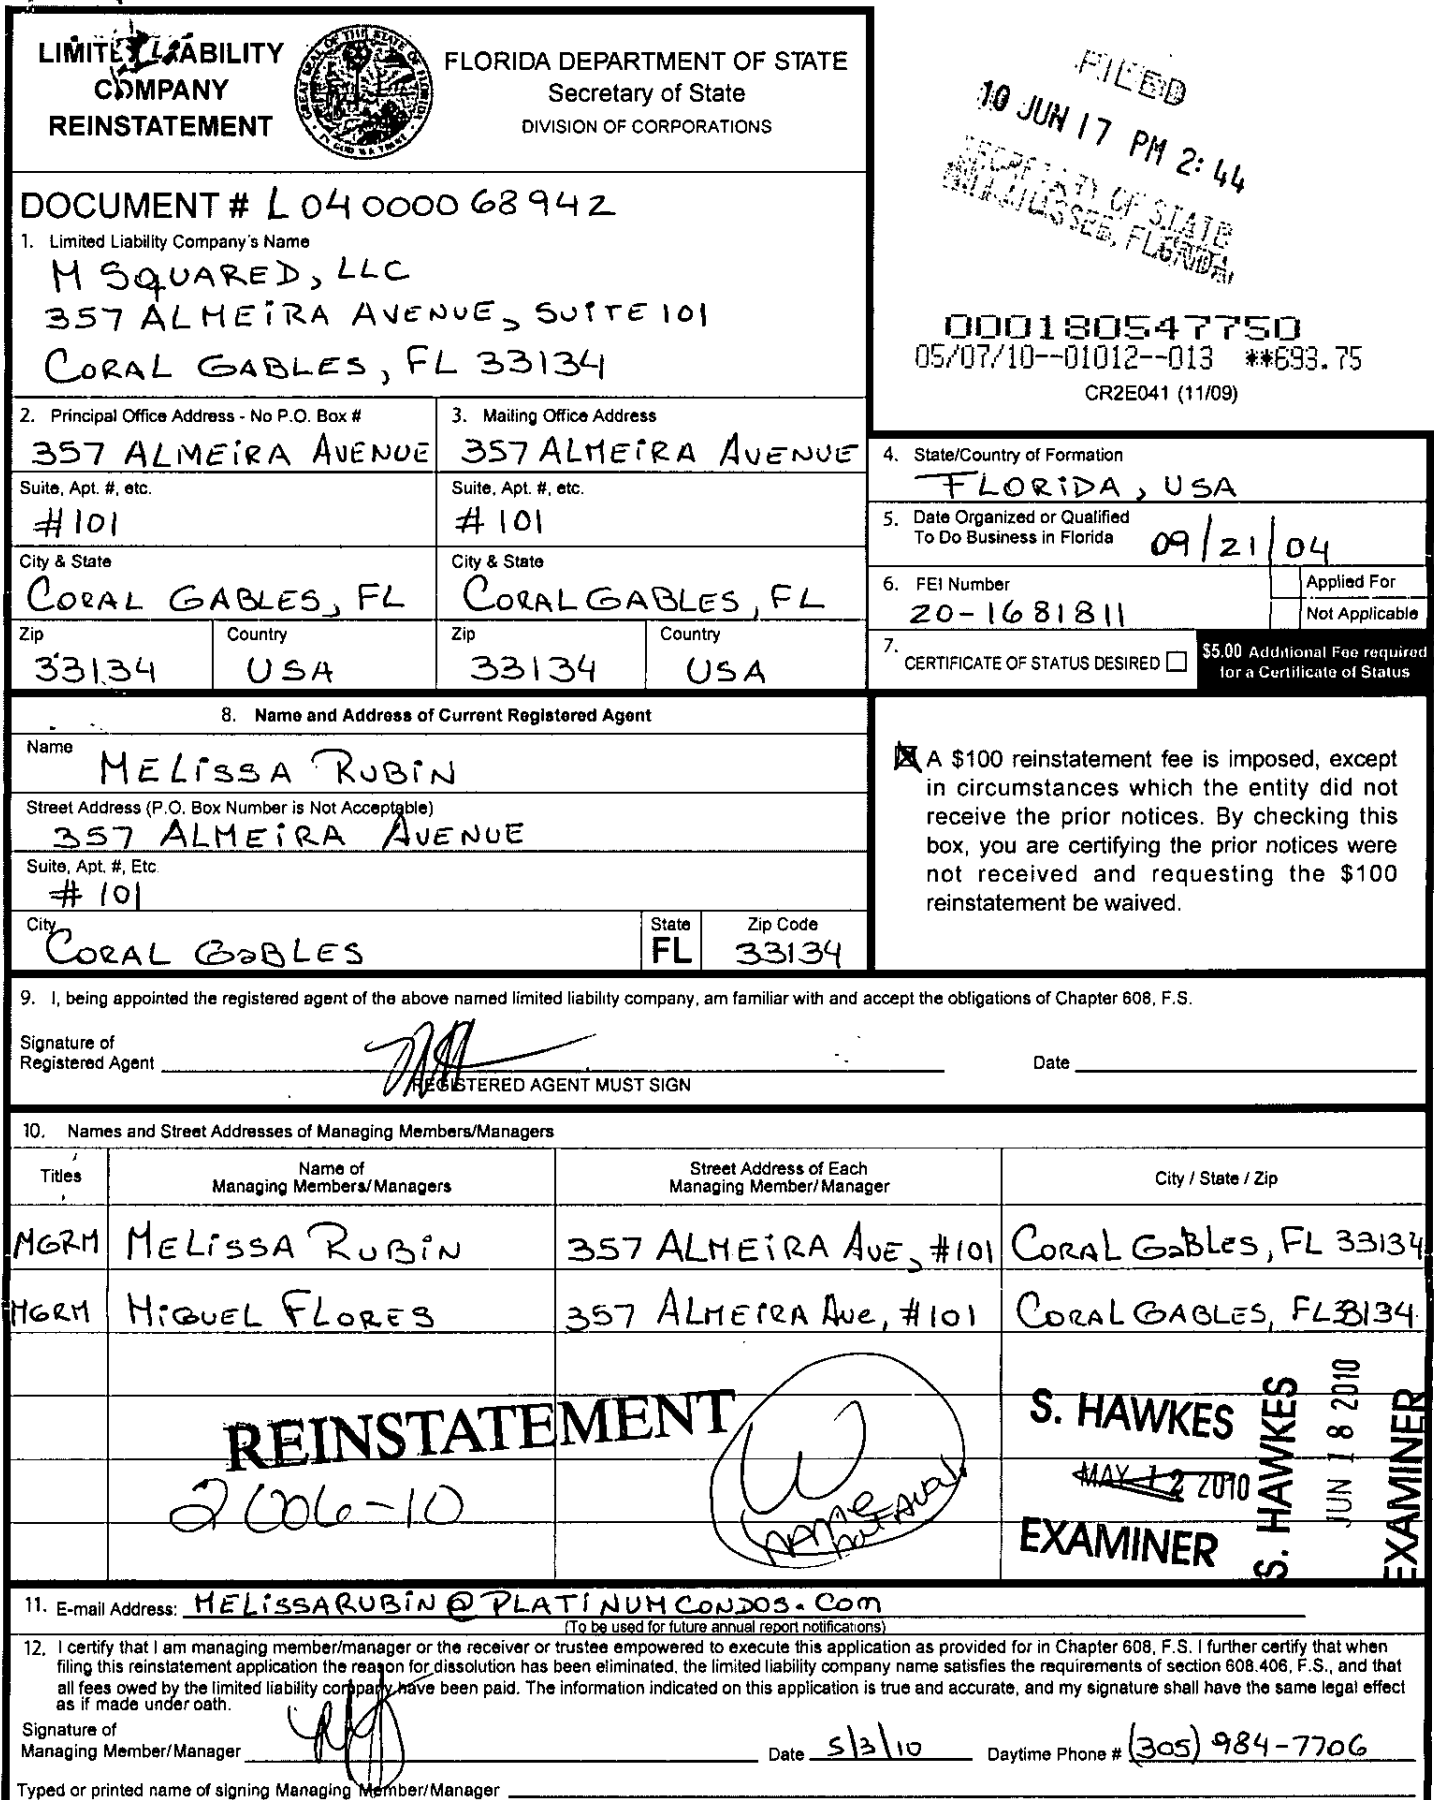 LIMITED LIABILITY
COMPANY
REINSTATEMENT
FLORIDA DEPARTMENT OF STATE
Secretary of State
DIVISION OF CORPORATIONS
FILED
10 JUN 17 PM 2:44
SECRETARY OF STATE
TALLAHASSEE, FLORIDA
DOCUMENT # L04000068942
1. Limited Liability Company's Name
M SQUARED, LLC
357 ALMEIRA AVENUE, SUITE 101
CORAL GABLES, FL 33134
000180547750
05/07/10--01012--013 **693.75
CR2E041 (11/09)
2. Principal Office Address - No P.O. Box #
357 ALMEIRA AVENUE
3. Mailing Office Address
357 ALMEIRA AVENUE
Suite, Apt. #, etc.
#101
Suite, Apt. #, etc.
#101
City & State
CORAL GABLES, FL
City & State
CORAL GABLES, FL
Zip
33134
Country
USA
Zip
33134
Country
USA
4. State/Country of Formation
FLORIDA, USA
5. Date Organized or Qualified
To Do Business in Florida
09/21/04
6. FEI Number
20-1681811
Applied For
Not Applicable
7. CERTIFICATE OF STATUS DESIRED
$5.00 Additional Fee required
for a Certificate of Status
8. Name and Address of Current Registered Agent
Name
MELISSA RUBIN
Street Address (P.O. Box Number is Not Acceptable)
357 ALMEIRA AVENUE
Suite, Apt. #, Etc
#101
City
CORAL GABLES
State
FL
Zip Code
33134
A $100 reinstatement fee is imposed, except
in circumstances which the entity did not
receive the prior notices. By checking this
box, you are certifying the prior notices were
not received and requesting the $100
reinstatement be waived.
9. I, being appointed the registered agent of the above named limited liability company, am familiar with and accept the obligations of Chapter 608, F.S.
Signature of
Registered Agent
Date
REGISTERED AGENT MUST SIGN
10. Names and Street Addresses of Managing Members/Managers
Titles
Name of
Managing Members/Managers
Street Address of Each
Managing Member/Manager
City / State / Zip
MGRM MELISSA RUBIN 357 ALMEIRA AVE, #101 CORAL GABLES, FL 33134
MGRM MIGUEL FLORES 357 ALMEIRA AVE, #101 CORAL GABLES, FL 33134
REINSTATEMENT
2006-10
W
name
not Avail
S. HAWKES
MAY 12 2010
EXAMINER
S. HAWKES
JUN 18 2010
EXAMINER
11. E-mail Address: MELISSARUBIN@PLATINUMCONDOS.COM
(To be used for future annual report notifications)
12. I certify that I am managing member/manager or the receiver or trustee empowered to execute this application as provided for in Chapter 608, F.S. I further certify that when
filing this reinstatement application the reason for dissolution has been eliminated, the limited liability company name satisfies the requirements of section 608.406, F.S., and that
all fees owed by the limited liability company have been paid. The information indicated on this application is true and accurate, and my signature shall have the same legal effect
as if made under oath.
Signature of
Managing Member/Manager
Date 5/3/10
Daytime Phone # (305) 984-7706
Typed or printed name of signing Managing Member/Manager